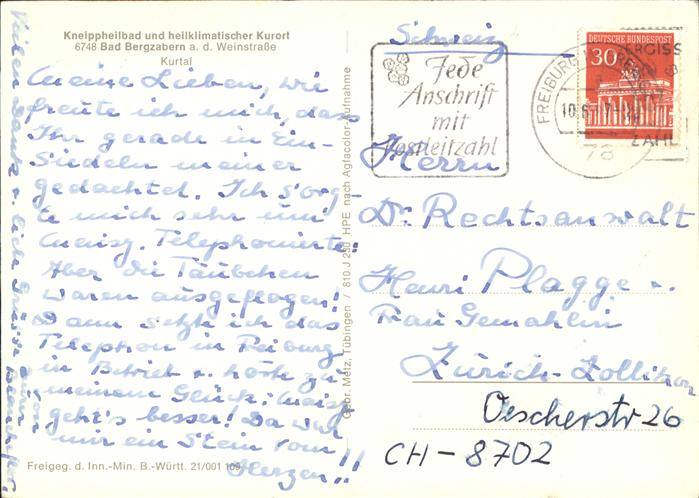 Kneippheilbad und heilklimatischer Kurort
6748 Bad Bergzabern a. d. Weinstraße
Kurtal
Meine Lieben, wie
freute ich mich, dass
Ihr gerade in Ein-
siedeln meiner
gedachtet. Ich sorg-
te mich sehr um
Telephonierte:
Aber die Täubchen
waren ausgeflogen!
Dann setzte ich das
Telephon in Freiburg
in Betrieb u. hörte zu
meinem Glück:
geht's besser! Da war
mir ein Stein vom
Herzen!!
Vielen Dank u. liebe Grüsse
Freigeg. d. Inn.-Min. B.-Württ. 21/001 109
Gebr. Metz, Tübingen / 810 J 250 HPE nach Agfacolor-Aufnahme
Schweiz
Jede
Anschrift
mit
Postleitzahl
FREIBURG
78
DEUTSCHE BUNDESPOST
30
ZAHL
Herrn
Dr. Rechtsanwalt
Henri Plagge u.
Frau Gemahlin
Zürich-Zollikon
Oescherstr 26
CH-8702